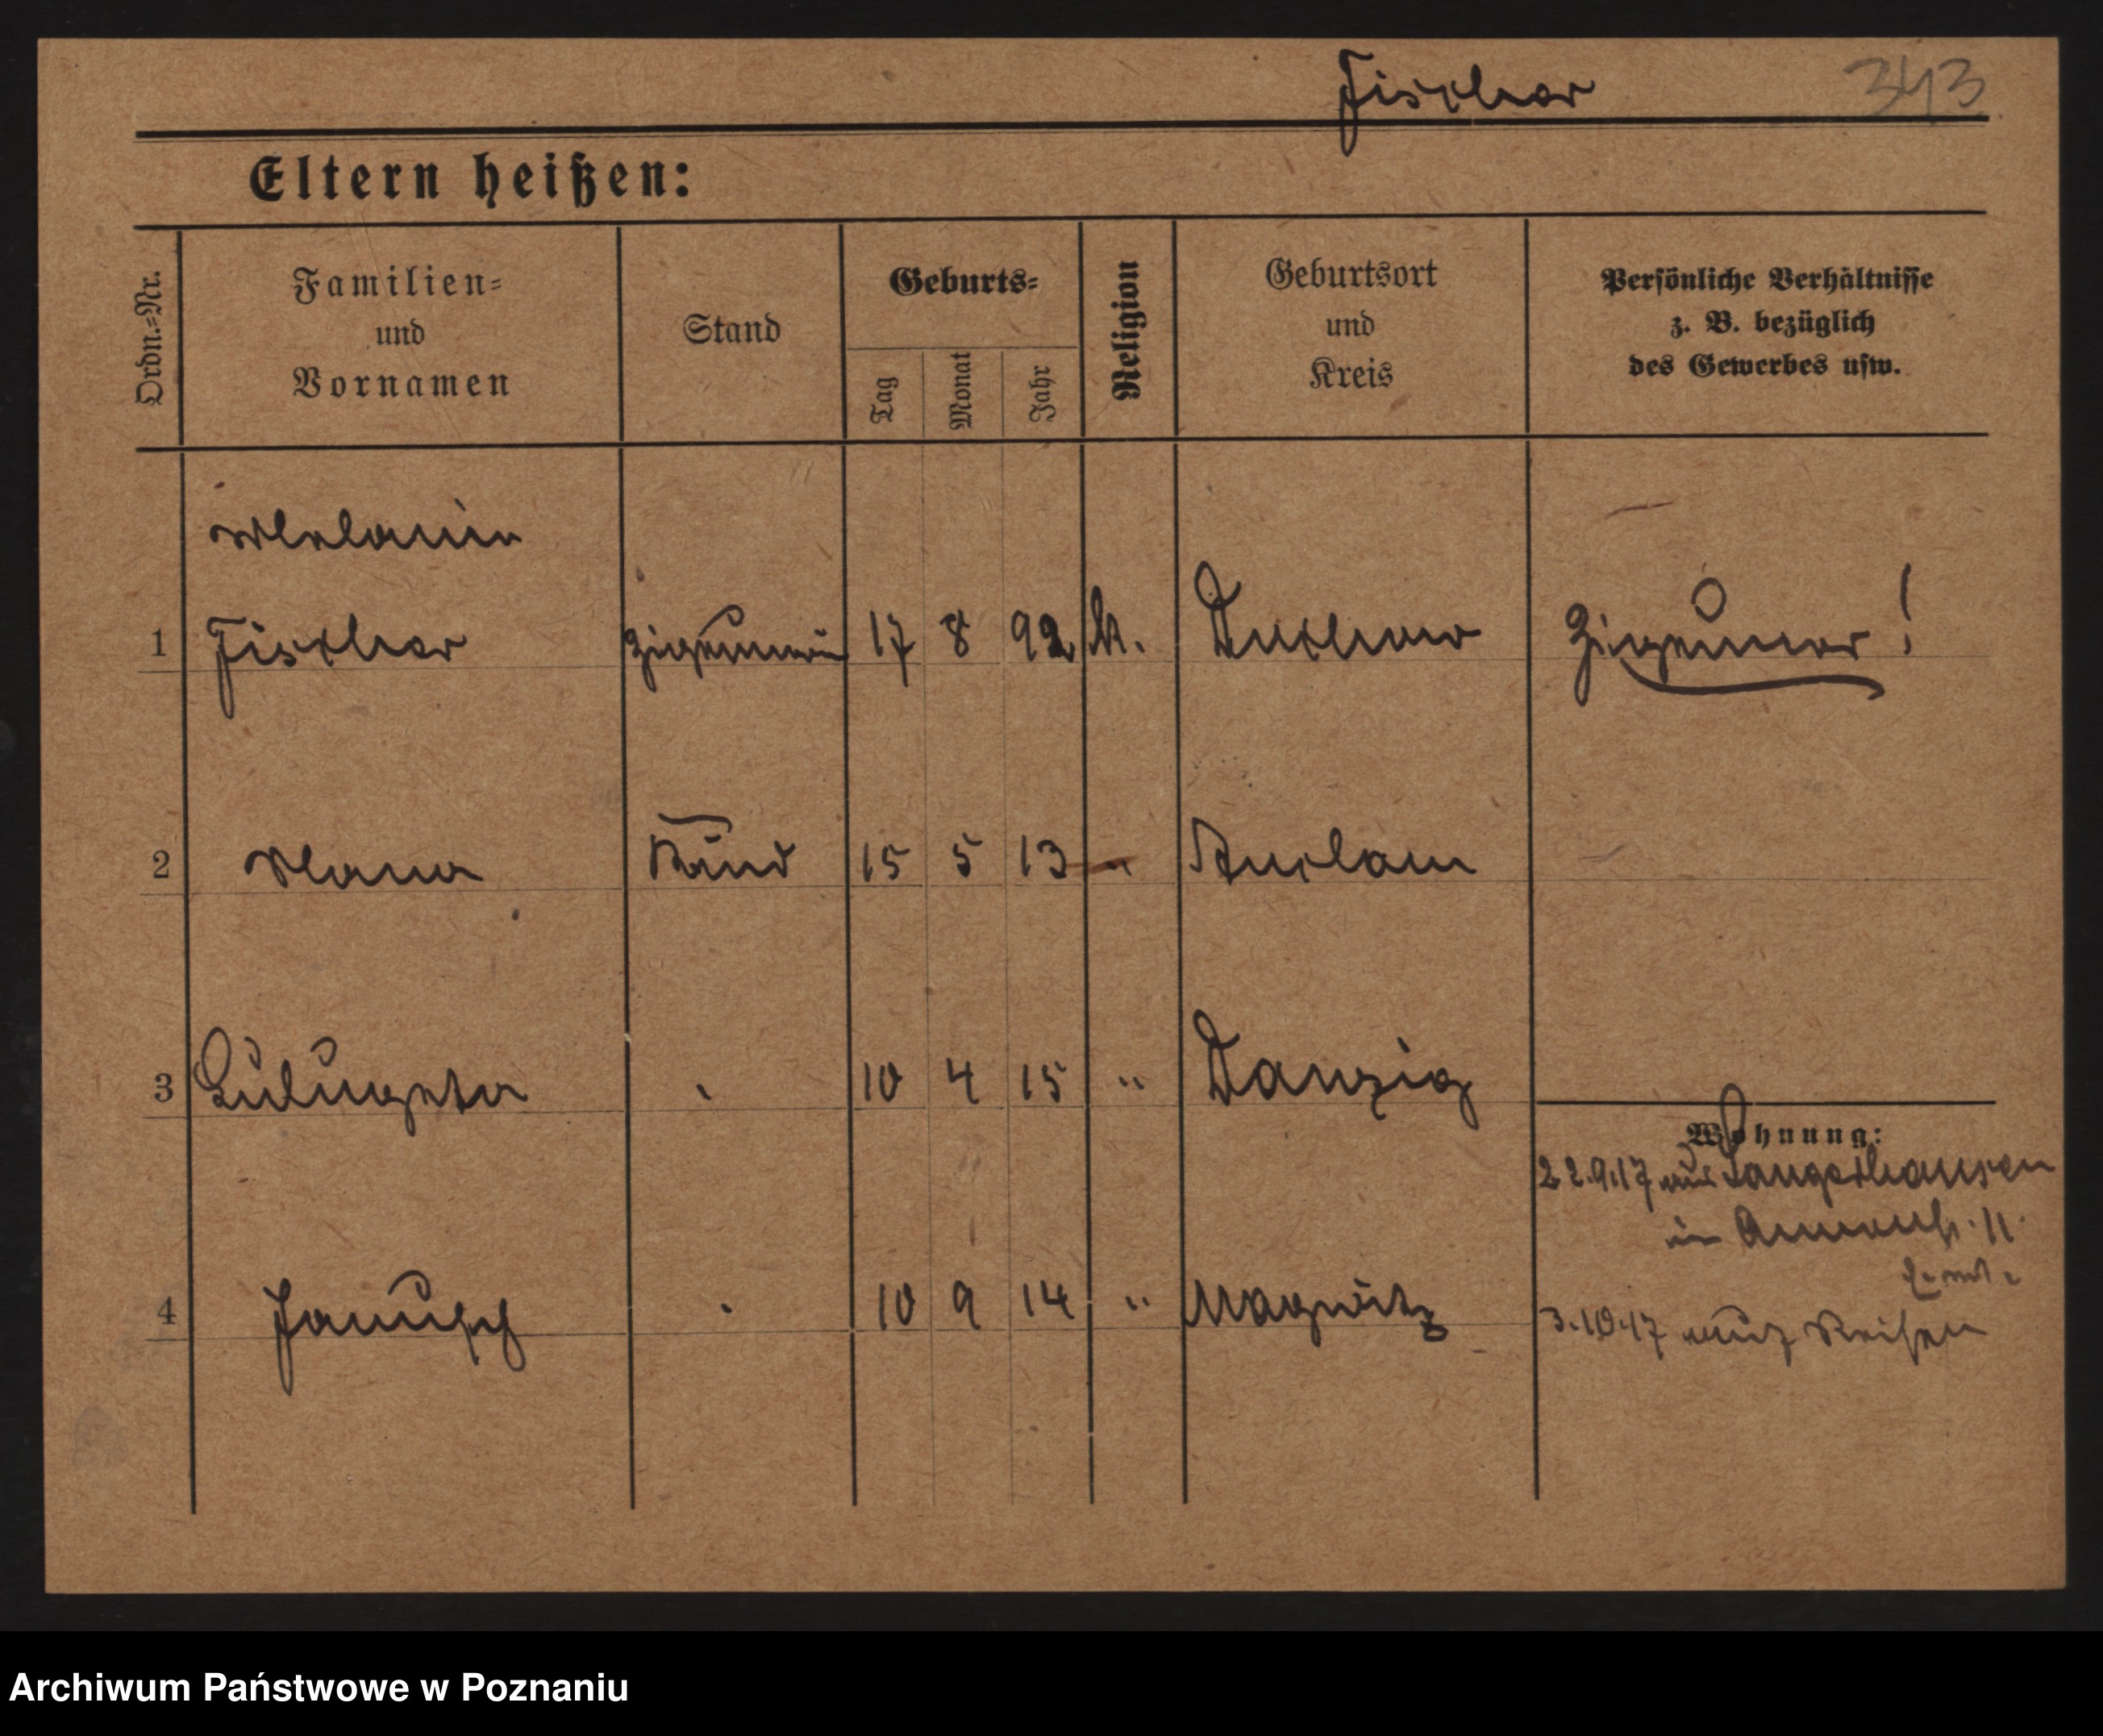 Fischer 343
Eltern heißen:
Ordn.=Nr.
Familien=
und
Vornamen
Stand
Geburts=
Tag
Monat
Jahr
Religion
Geburtsort
und
Kreis
Persönliche Verhältnisse
z. B. bezüglich
des Gewerbes usw.
Melanie
1 Fischer Zigeunerin 17 8 92 k. Zigeuner!
2 Kind 15 5 13 " Anclam
3 " 10 4 15 " Danzig
Wohnung:
22.9.17 aus Sangerhausen
in
4 Janusch " 10 9 14 "
3.10.17 auf Reisen
Archiwum Państwowe w Poznaniu